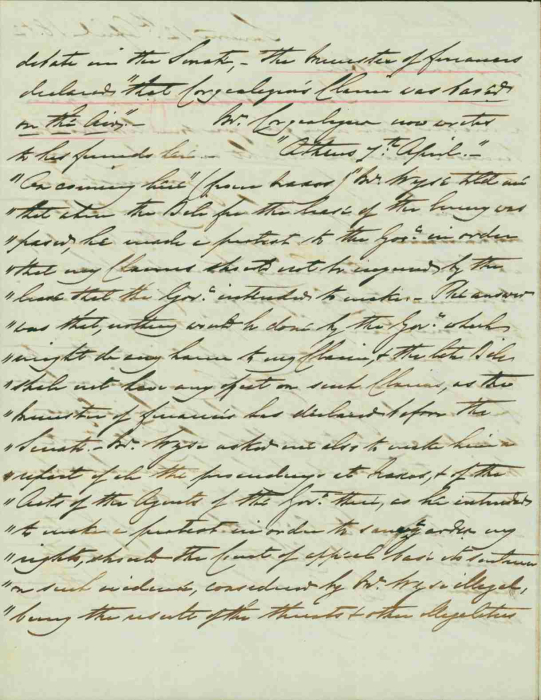 debate in the Senate, - the Minister of finances
declared "that Corgealegno's Claim" was based
on the Air," - Mr. Corgealegno now writes
to his friends here - "Athens 7th April. -"
"On coming here" (from Naxos) "Mr. Wyse told me
"that when the Bill for the lease of the Emery was
"passed, he made a protest to the Govt. in order
"that my Claims should not be injured by the
"lease that the Govt. intended to make - The answer
"was that, nothing would be done by the Govt. which
"might do any harm to my Claim, & the late Bill
"shall not have any effect on such Claims, as the
"Minister of finances has declared before the
"Senate - Mr. Wyse asked me also to make him a
"report of all the proceedings at Naxos, & of the
"Acts of the Agents of the Govt. there, as he intended
"to make a protest in order to safeguard my
"rights, should the Court of appeal base its sentence
"on such evidence, considered by Mr. Wyse illegal,
"being the result of the threats & other illegalities